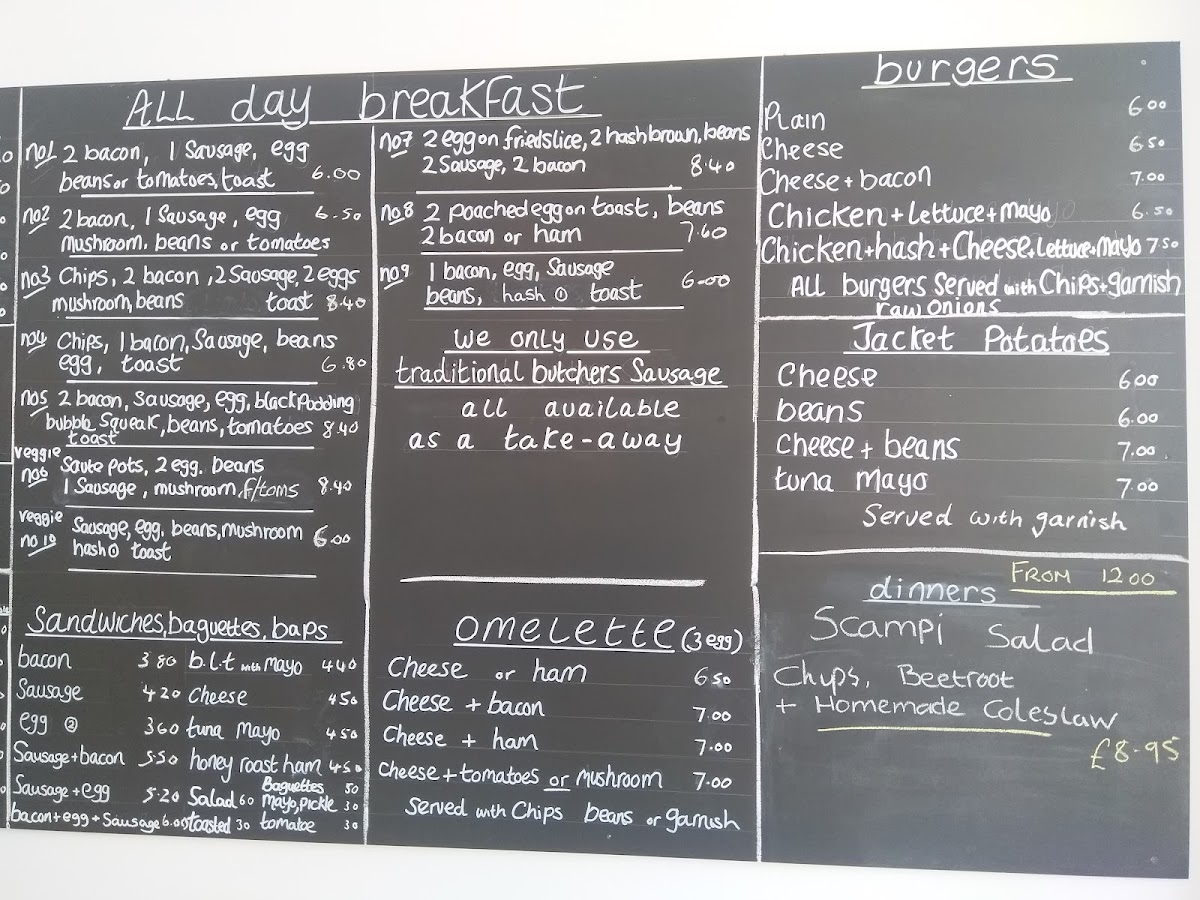 ALL day breakfast
no1 2 bacon, 1 Sausage, egg
beans or tomatoes, toast 6.00
no2 2 bacon, 1 Sausage, egg 6.50
mushroom. beans or tomatoes
no3 Chips, 2 bacon, 2 Sausage, 2 eggs
mushroom, beans toast 8.40
no4 Chips, 1 bacon, Sausage, beans
egg, toast 6.80
no5 2 bacon, Sausage, egg, black Pudding
bubble Squeak, beans, tomatoes 8.40
toast
veggie
no6 Saute pots, 2 egg. beans
1 Sausage, mushroom, f/toms 8.40
veggie
no 10 Sausage, egg. beans, mushroom 6.00
hash ① toast
no7 2 egg on fried slice, 2 hash brown, beans
2 Sausage, 2 bacon 8.40
no8 2 Poached egg on toast, beans
2 bacon or ham 7.60
no9 1 bacon, egg, Sausage 6.00
beans, hash ① toast
we only use
traditional butchers Sausage
all available
as a take-away
Sandwiches, baguettes, baps
bacon 3 80
Sausage 4 20
egg ② 3 60
Sausage + bacon 5.50
Sausage + egg 5.20
bacon + egg + Sausage 6.00
b.l.t with mayo 4 40
Cheese 4 50
tuna mayo 4 50
honey roast ham 4 50
Salad 60
Baguettes 50
mayo, pickle 30
toasted 30 tomatoe 30
omelette (3 egg)
Cheese or ham 6 50
Cheese + bacon 7.00
Cheese + ham 7.00
Cheese + tomatoes or mushroom 7.00
Served with Chips beans or garnish
burgers
Plain 6 00
Cheese 6 50
Cheese + bacon 7.00
Chicken + Lettuce + mayo 6.50
Chicken + hash + Cheese + Lettuce + mayo 7 50
ALL burgers Served with Chips + garnish
raw onions
Jacket Potatoes
Cheese 6 00
beans 6.00
Cheese + beans 7.00
tuna mayo 7.00
Served with garnish
FROM 12 00
dinners
Scampi Salad
Chips, Beetroot
+ Homemade Coleslaw
£8.95